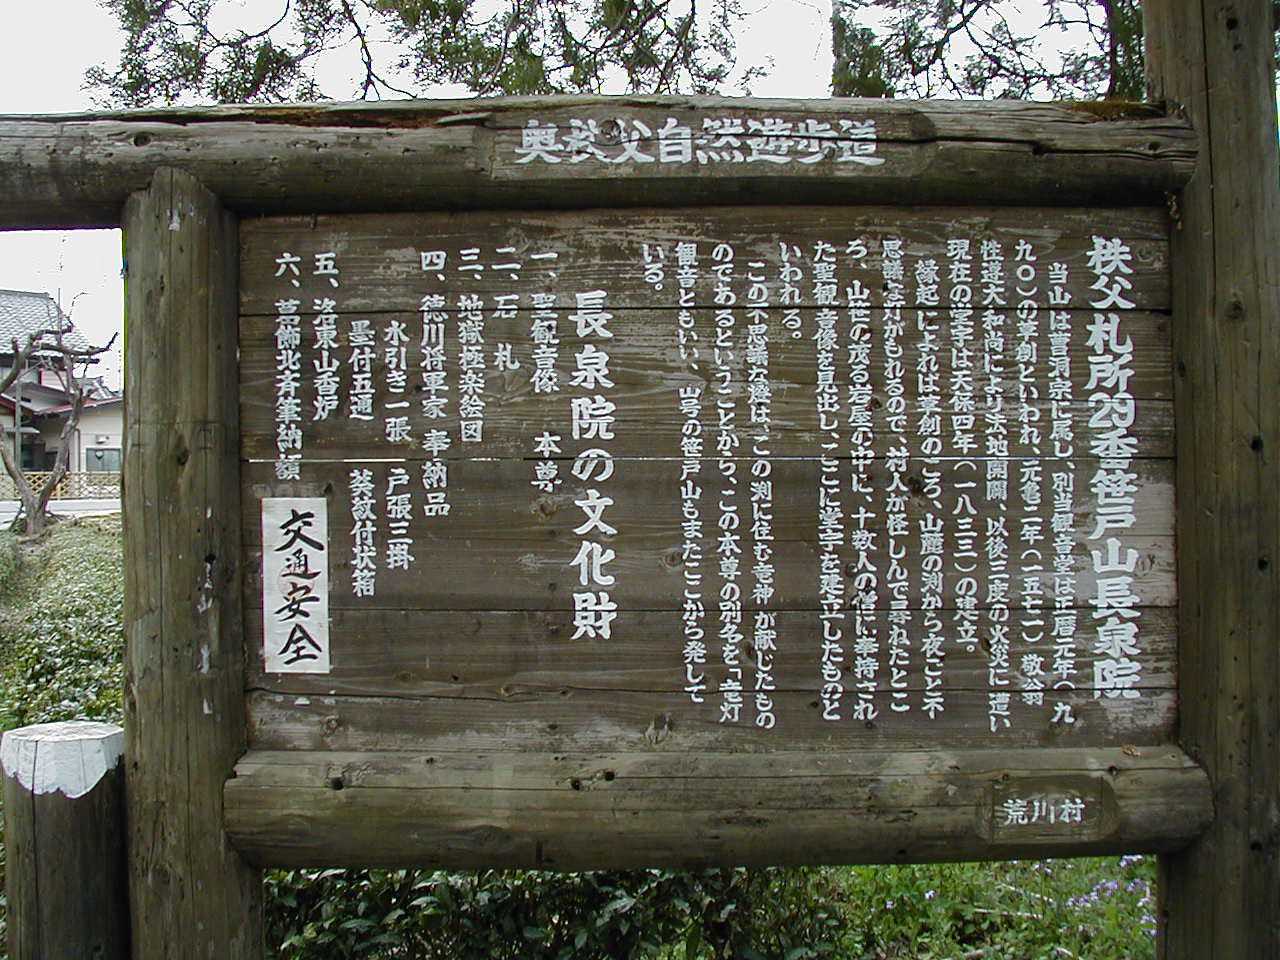 奥秩父自然遊歩道
秩父札所29番笹戸山長泉院
当山は曹洞宗に属し、別当観音堂は正暦元年(九
九〇)の草創といわれ、元亀二年(一五七一)敬翁
性遵大和尚により本地開闢、以後三度の火災に遭い
現在の堂宇は天保四年(一八三三)の建立。
縁起によれば草創のころ、山麓の渕から夜ごと不
思議な灯がもれるので、村人が怪しんで尋ねたとこ
ろ、山笹の茂る岩屋の中に、十数人の僧に奉持され
た聖観音像を見出し、ここに堂宇を建立したものと
いわれる。
この不思議な燈は、この渕に住む竜神が献じたもの
のであるということから、この本尊の別名を「竜灯
観音ともいい、山号の笹戸山もまたここから発して
いる。
長泉院の文化財
一、聖観音像 本尊
二、石札
三、地獄極楽絵図
四、徳川将軍家 奉納品
水引き一張 戸張三掛
墨付五通 葵紋付状箱
五、洛東山香炉
六、葛飾北斉筆納額
交通安全
荒川村